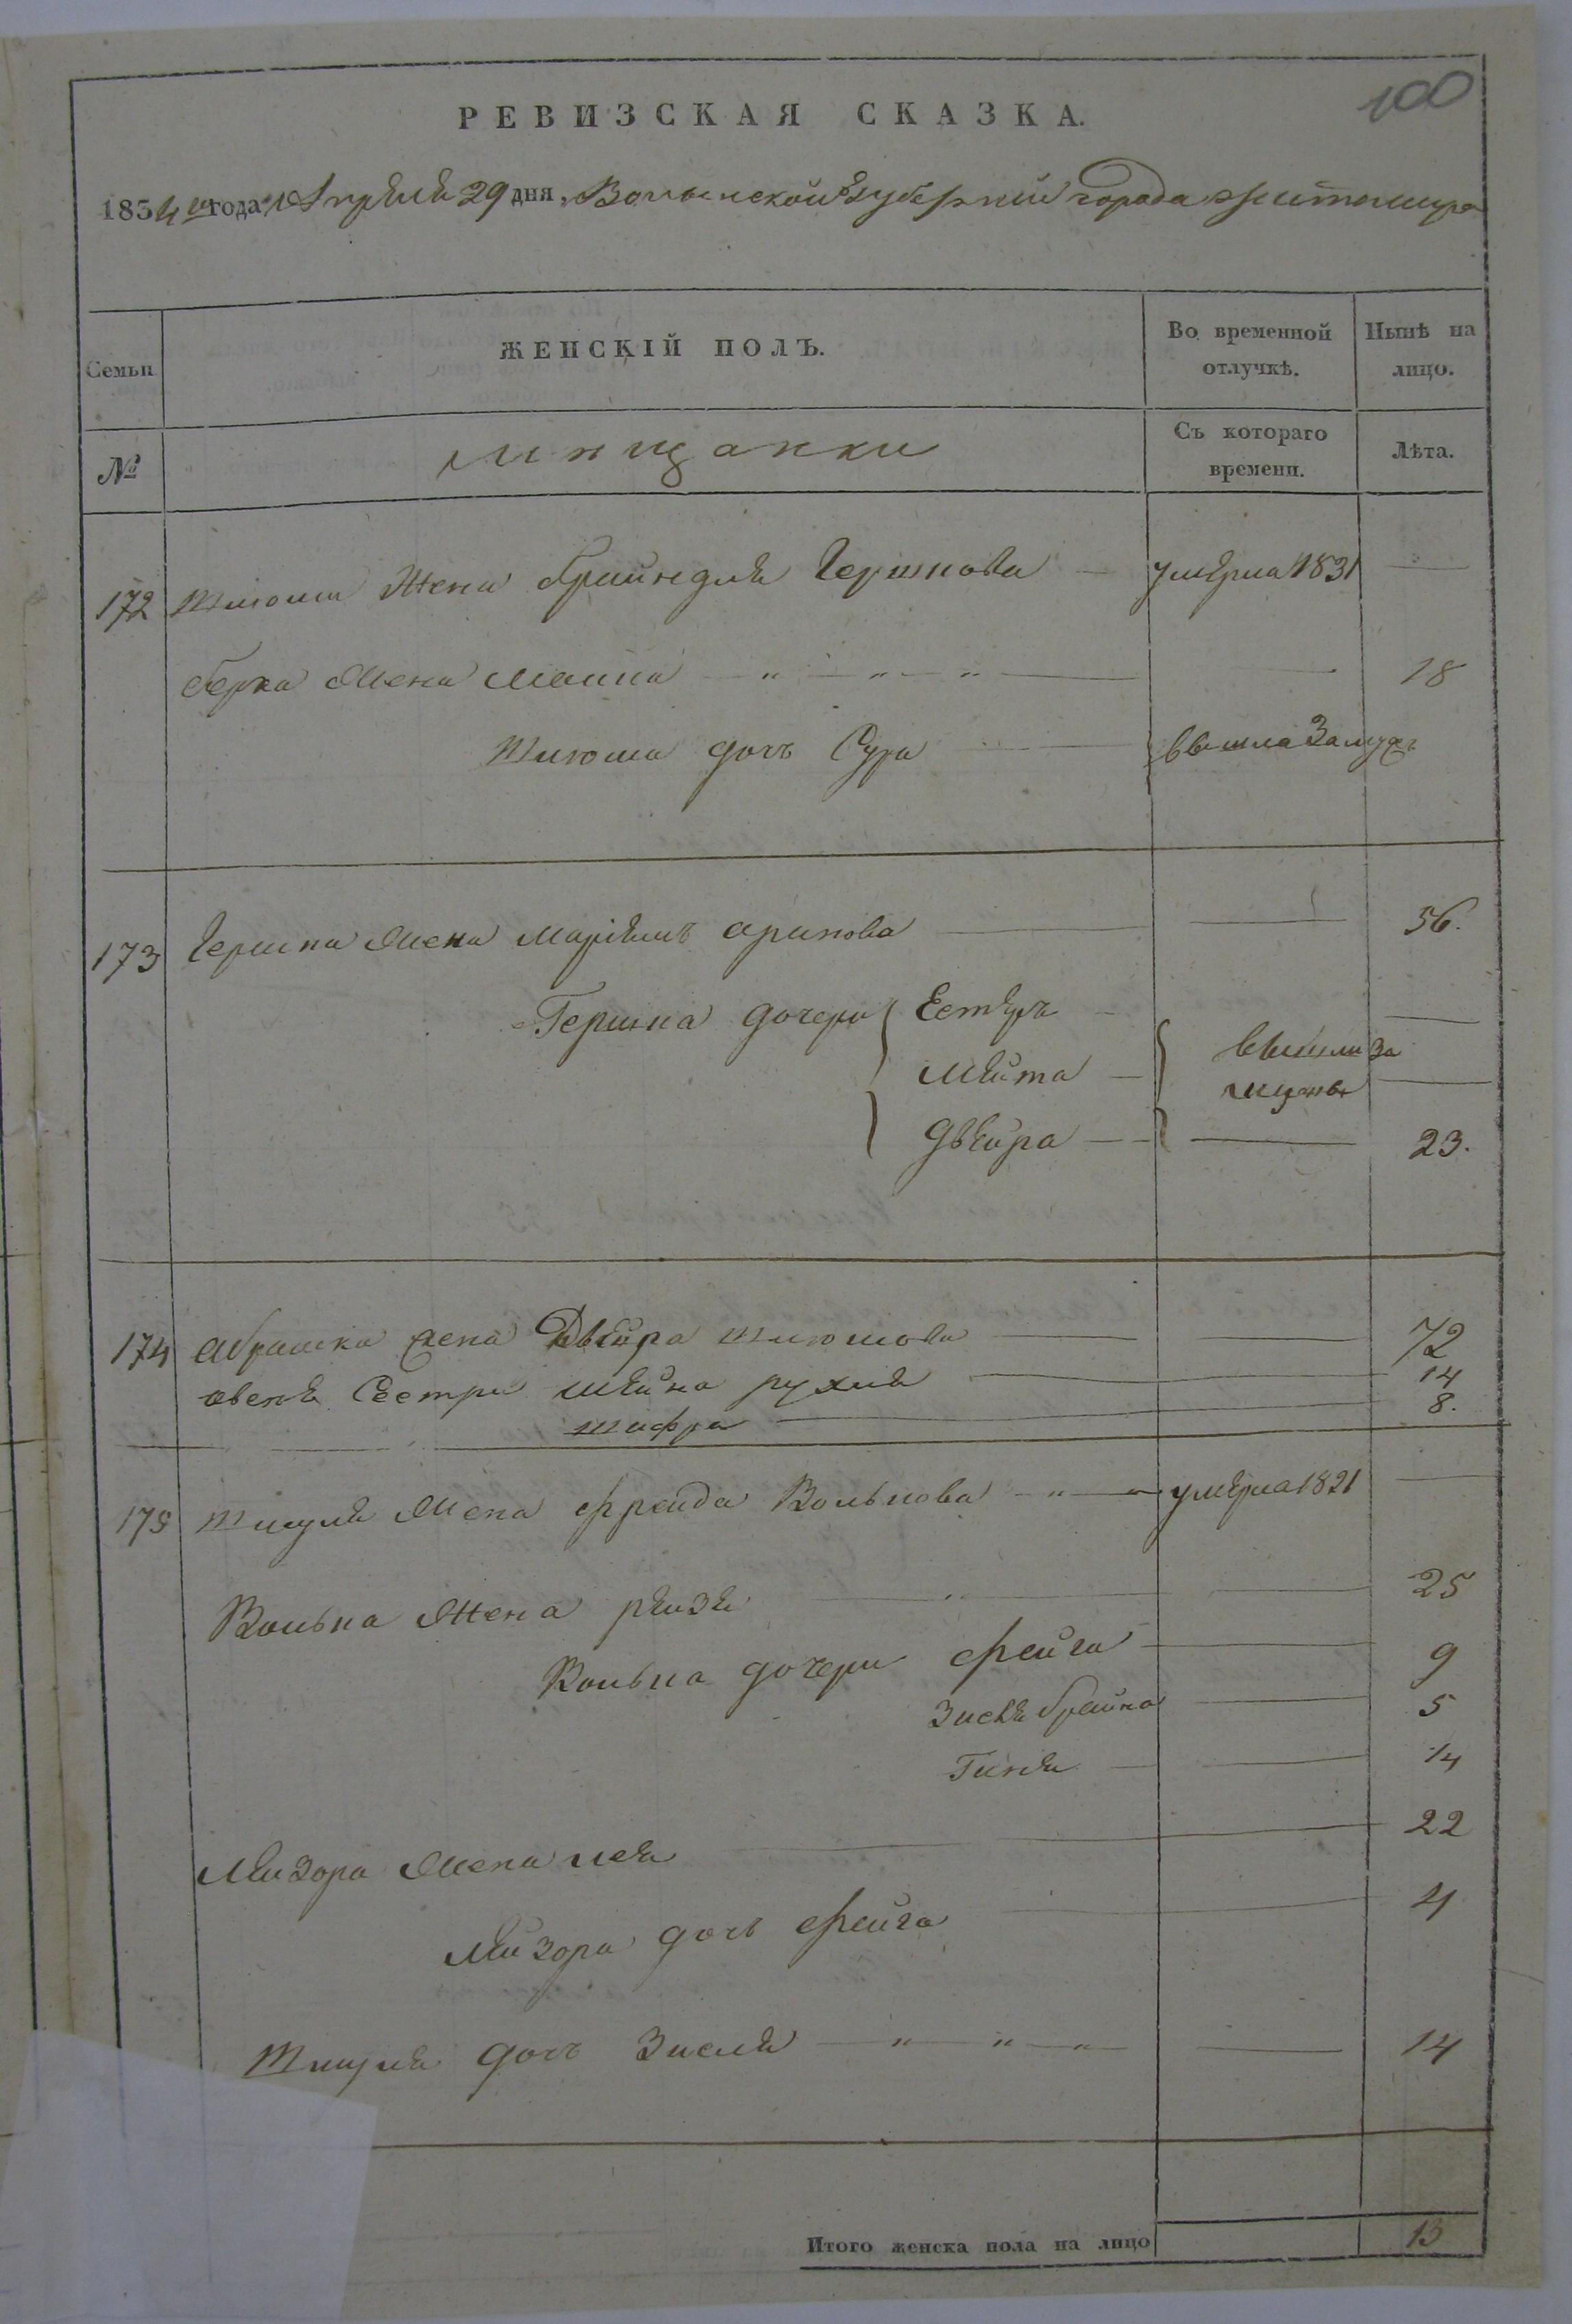 100
РЕВИЗСКАЯ СКАЗКА.
1834 го года Апреля 29 дня Волынской Губернии города Житомира
Семьи ЖЕНСКІЙ ПОЛЪ. Во временной отлучкѣ. Нынѣ на лицо.
№ мищанки Съ котораго времени. Лѣта.
172 Шліоми Жена Брайндля Гершкова — умерла 1831 —
Берка Жена Малка " " " — — 18
Шліома дочь Сура — вышла Замуж
173 Гершка Жена Маріемъ арикова — — 56.
Гершка дочери Естеръ — —
Мейта — вышли за мужъ —
Двейра — — 23.
174 Абрамка жена Двейра Шліомова — — 72
Сестри Шейна рухля — 14
Шифра — 8.
175 Шмуля Жена Фрейда Волькова — " — умерла 1821 —
Волька Жена рейзя — — 25
Волька дочери Фейга — — 9
Брайна — 5
Гитля — — 14
Лейзора Жена лея — 22
Лейзора дочь Фейга — 4
Шмуля дочь Зисля — " — " — " — — 14
Итого женска пола на лицо 13